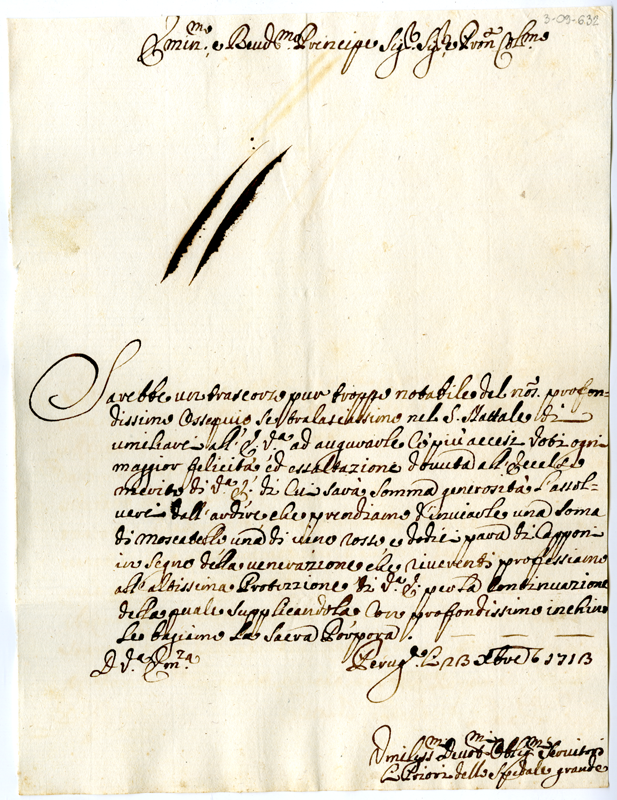 3-09-632
Emin.mo e Reud.mo Principe Sig.r Sig.r e Pron.e Col.mo
Sarebbe un trascorso pur troppo notabile del nõs. profon-
dissimo Ossequio se tralasciassimo nel S. Nattale di
umiliare all' E. V.a ad augurarle Co più accesi Voti ogni
maggior felicità ed essaltazione douuta all' Eccelso
merito di V.a E. di Cui sarà somma generosità l'assol-
uere dall'ardire che prendiamo d'inuiarle una soma
di moscatello una di uino rosso e dodici para di Capponi
in segno della uenerazione che riuerenti professiamo
all'altissima Protezzione di V.a E. per la Continuazione
della quale supplicandola con profondissimo inchino
le bagiamo la Sacra Porpora.
D V.a Em.za
Perug.a li 23 Xbre 1713
Vmiliss.mi Deuot.mi Oblig.mi Seruitori
Li Priori dello Spedale grande